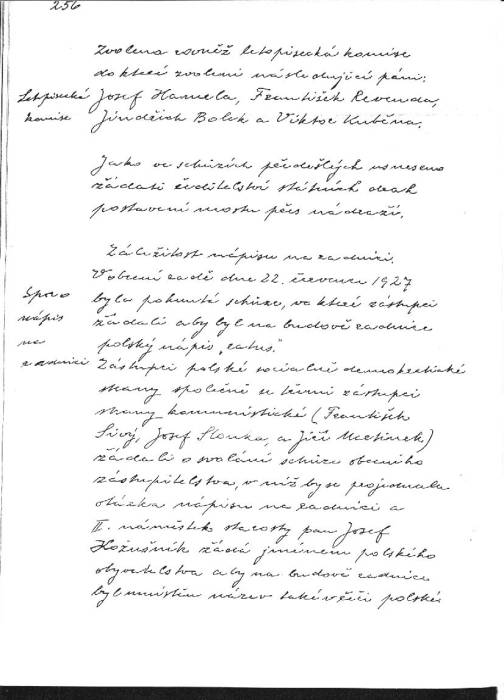 256
Zvolena rovněž letopisecká komise
do které zvoleni následující páni:
Letopisecká
komise
Josef Hamela, František Revenda,
Jindřich Bolek a Viktor Kuběna.
Jako ve schůzích předešlých usneseno
žádati ředitelství státních drah
postavení mostu přes nádraží.
Záležitost nápisu na radnici.
V obecní radě dne 22. července 1927
Spor o
nápis
na
radnici
byla pohnutá schůze, ve které zástupci
žádali aby byl na budově radnice
polský nápis „ratus."
Zástupci polské sociálně demokratické
strany společně se třemi zástupci
strany komunistické (František
Sivý, Josef Slonka, a Jiří Martinek)
žádali o svolání schůze obecního
zastupitelstva, v níž by se projednala
otázka nápisu na radnici a
II. náměstek starosty pan Josef
Hożušník žádá jménem polského
obyvatelstva aby na budově radnice
byl umístěn název také v řeči polské.